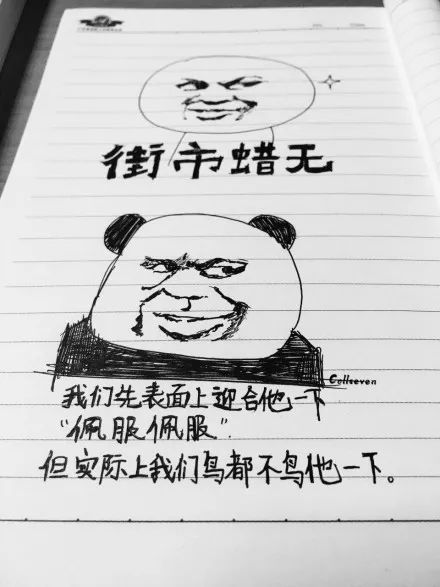 街市蜡无
Collseven
我们先表面上迎合他一下
“佩服佩服”.
但实际上我们鸟都不鸟他一下。